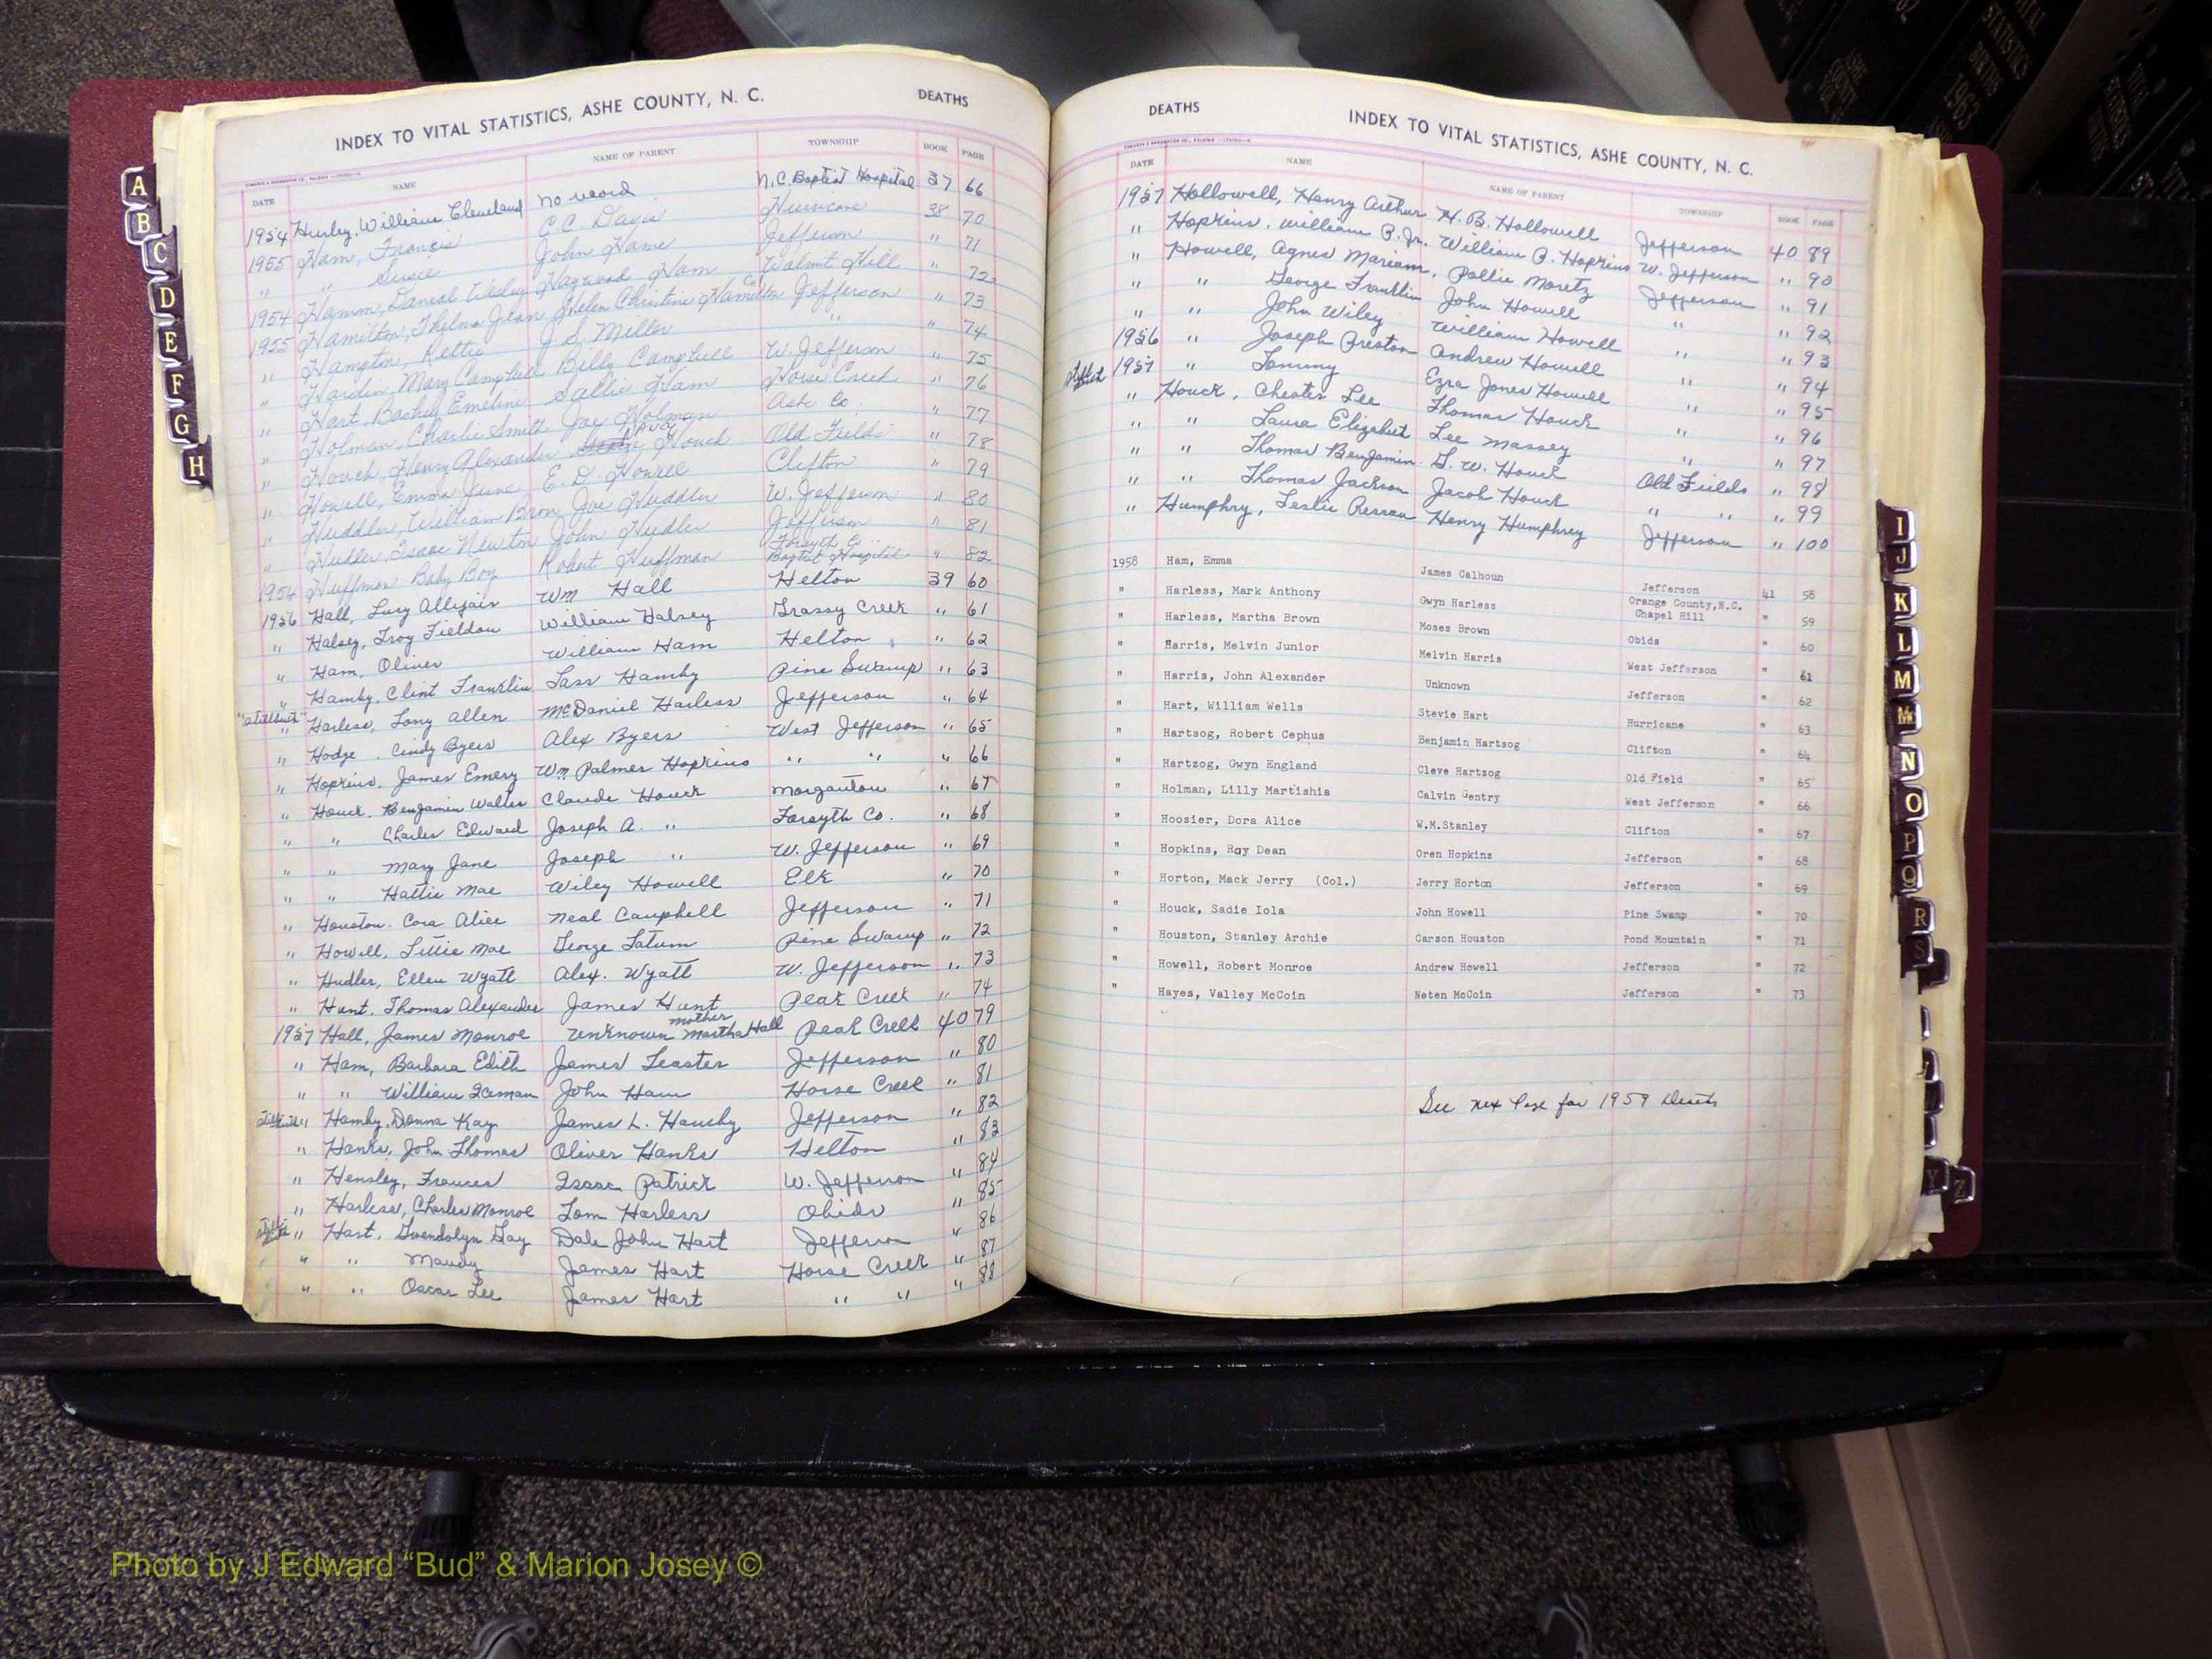 INDEX TO VITAL STATISTICS, ASHE COUNTY, N. C. DEATHS
DATE NAME NAME OF PARENT TOWNSHIP BOOK PAGE
1954 Hurley, William Cleveland No record N.C. Baptist Hospital 37 66
1955 Ham, Francis C.C. Davis Hurricane 38 70
" " Susie John Hame Jefferson " 71
1954 Hamm, Danial Wesley Haywood Ham Walnut Hill " 72
1955 Hamilton, Thelma Jean Helen Christine Hamilton Jefferson " 73
" Hampton, Rettie J. S. Miller " " 74
" Hardin, Mary Campbell Billy Campbell W. Jefferson " 75
" Hart, Emeline Sallie Ham Horse Creek " 76
" Holman, Charlie Smith Jay Holman Ash Co. " 77
" Houck, Henry Alexander Houck Old Fields " 78
" Howell, Emma June E. D. Howell Clifton " 79
" Huddler, William Bron Joe Huddler W. Jefferson " 80
" Hudler, Isaac Newton John Hudler Jefferson " 81
1954 Huffman Baby Boy Robert Huffman Forsyth Co. Baptist Hospital " 82
1956 Hall, Lucy Allifair Wm Hall Helton 39 60
" Halsey, Troy Fieldon William Halsey Grassy Creek " 61
" Ham, Oliver William Ham Helton " 62
" Hamby, Clint Franklin Lass Hamby Pine Swamp " 63
"stillbirth" " Harless, Tony Allen McDaniel Harless Jefferson " 64
" Hodge, Cindy Byers Alex Byers West Jefferson " 65
" Hopkins, James Emery Wm Palmer Hopkins " " " 66
" Houck, Benjamin Walter Claude Houck Morganton " 67
" " Charles Edward Joseph A. " Forsyth Co. " 68
" " Mary Jane Joseph " W. Jefferson " 69
" " Hattie Mae Wiley Howell Elk " 70
" Houston, Cora Alice Neal Campbell Jefferson " 71
" Howell, Tillie Mae George Tatum Pine Swamp " 72
" Hudler, Ellen Wyatt Alex. Wyatt W. Jefferson " 73
" Hunt, Thomas Alexander James Hunt Peak Creek " 74
1957 Hall, James Monroe Unknown mother Martha Hall Peak Creek 40 79
" Ham, Barbara Edith James Leaster Jefferson " 80
" " William Iceman John Ham Horse Creek " 81
" Hamby, Donna Kay James L. Hamby Jefferson " 82
" Hanks, John Thomas Oliver Hanks Helton " 83
" Hensley, Frances Isaac Patrick W. Jefferson " 84
" Harless, Charles Monroe Tom Harless Obids " 85
" Hart, Gwendolyn Gay Dale John Hart Jefferson " 86
" " Maudy James Hart Horse Creek " 87
" " Oscar Lee James Hart " " " 88
DEATHS INDEX TO VITAL STATISTICS, ASHE COUNTY, N. C.
DATE NAME NAME OF PARENT TOWNSHIP BOOK PAGE
1957 Hollowell, Henry Arthur H. B. Hollowell Jefferson 40 89
" Hopkins, William P. Jr. William P. Hopkins W. Jefferson " 90
" Howell, Agnes Mariam, Pollie Moretz Jefferson " 91
" " George Franklin John Howell " " 92
" " John Wiley William Howell " " 93
1956 " Joseph Preston Andrew Howell " " 94
1957 " Tommy Ezra Jones Howell " " 95
" Houck, Chester Lee Thomas Houck " " 96
" " Laura Elizabeth Lee Massey " " 97
" " Thomas Benjamin G. W. Houck Old Fields " 98
" " Thomas Jackson Jacob Houck " " " 99
" Humphry, Leslie Henry Humphrey Jefferson " 100
1958 Ham, Emma James Calhoun Jefferson 41 58
" Harless, Mark Anthony Gwyn Harless Orange County, N.C. Chapel Hill " 59
" Harless, Martha Brown Moses Brown Obids " 60
" Harris, Melvin Junior Melvin Harris West Jefferson " 61
" Harris, John Alexander Unknown Jefferson " 62
" Hart, William Wells Stevie Hart Hurricane " 63
" Hartsog, Robert Cephus Benjamin Hartsog Clifton " 64
" Hartzog, Gwyn England Cleve Hartzog Old Field " 65
" Holman, Lilly Martishia Calvin Gentry West Jefferson " 66
" Hoosier, Dora Alice W.M.Stanley Clifton " 67
" Hopkins, Ray Dean Oren Hopkins Jefferson " 68
" Horton, Mack Jerry (Col.) Jerry Horton Jefferson " 69
" Houck, Sadie Iola John Howell Pine Swamp " 70
" Houston, Stanley Archie Carson Houston Pond Mountain " 71
" Howell, Robert Monroe Andrew Howell Jefferson " 72
" Hayes, Valley McCoin Neten McCoin Jefferson " 73
See next page for 1959 Deaths
A
B
C
D
E
F
G
H
I
J
K
L
M
Mc
N
O
P
Q
R
S
Y
Z
VITAL STATISTICS BIRTHS 1963
Photo by J Edward “Bud” & Marion Josey ©